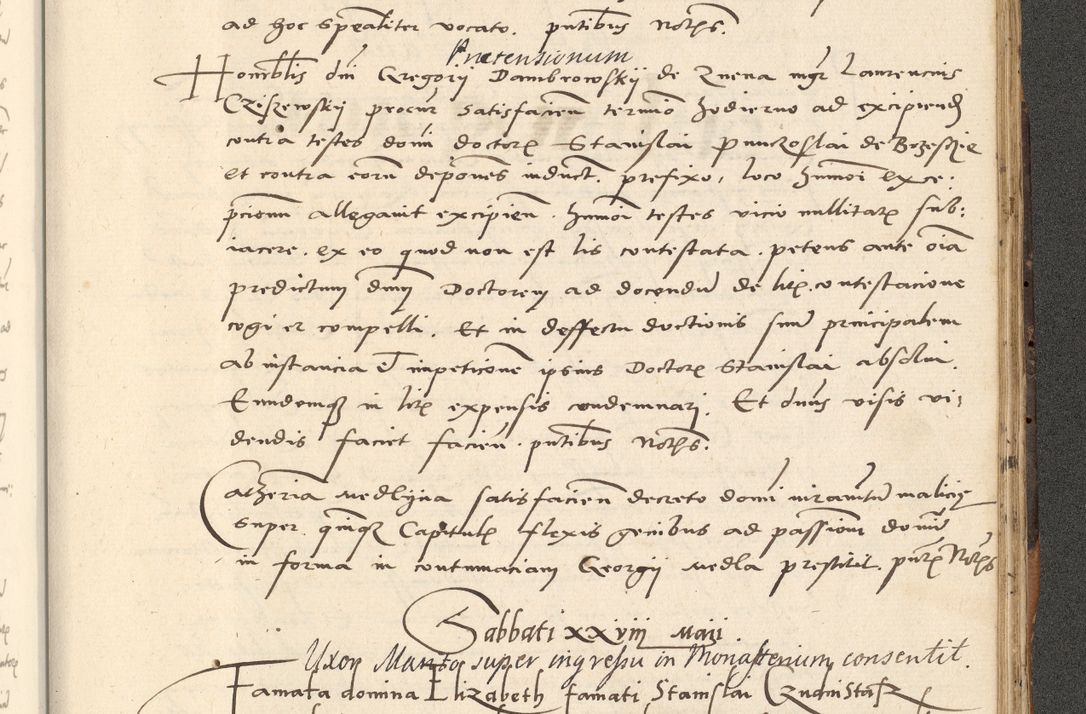 ad hoc spealiter vocato. pntibus Noths.
Pretensionum
Honoblis dni Gregorij Dambrowskij de Znena mgr Laurencius
Cziszewskij procur satisfacien termio hodierno ad excipiend
contra testes domi doctoris Stanislai de
et contra eorum depones induct. prefixo, loco hmmoi exce:
pcionum allegavit excipien. hmmoi testes vicio nullitatis sub:
iacere. ex eo quod non est lis contestata. petens ante oia
predictum dnm Doctorem ad docendu de litis contestacione
cogi et compelli. Et in deffectu doctionis sum principalem
ab instancia et impeticone ipsius Doctoris Stanislai absolvi.
Eundemq in litis expensis condemnari. Et dnus visis vi,
dendis faciet facien. pntibus Noths.
Catheria medlyna satisfacien decreto domi iuramtum malicię
super Capitulis flexis genibus ad passionem domi
in forma in contumaciam Georgij medla prestitit. pntis Noths
Sabbati xxviij Maij.
Uxor super ingressu in Monasterium consentit.
Famata domina Elizabeth famati Stanislai